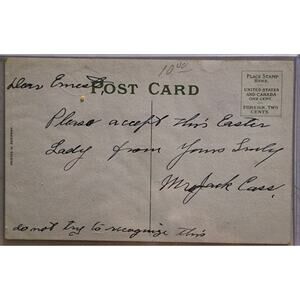 10.00
Dear Ernest
POST CARD
PLACE STAMP
HERE
UNITED STATES
AND CANADA
ONE CENT
FOREIGN, TWO
CENTS
Please accept this Easter
Lady from Yours Truly
Mr Jack Cass.
do not try to recognize this
PRINTED IN GERMANY